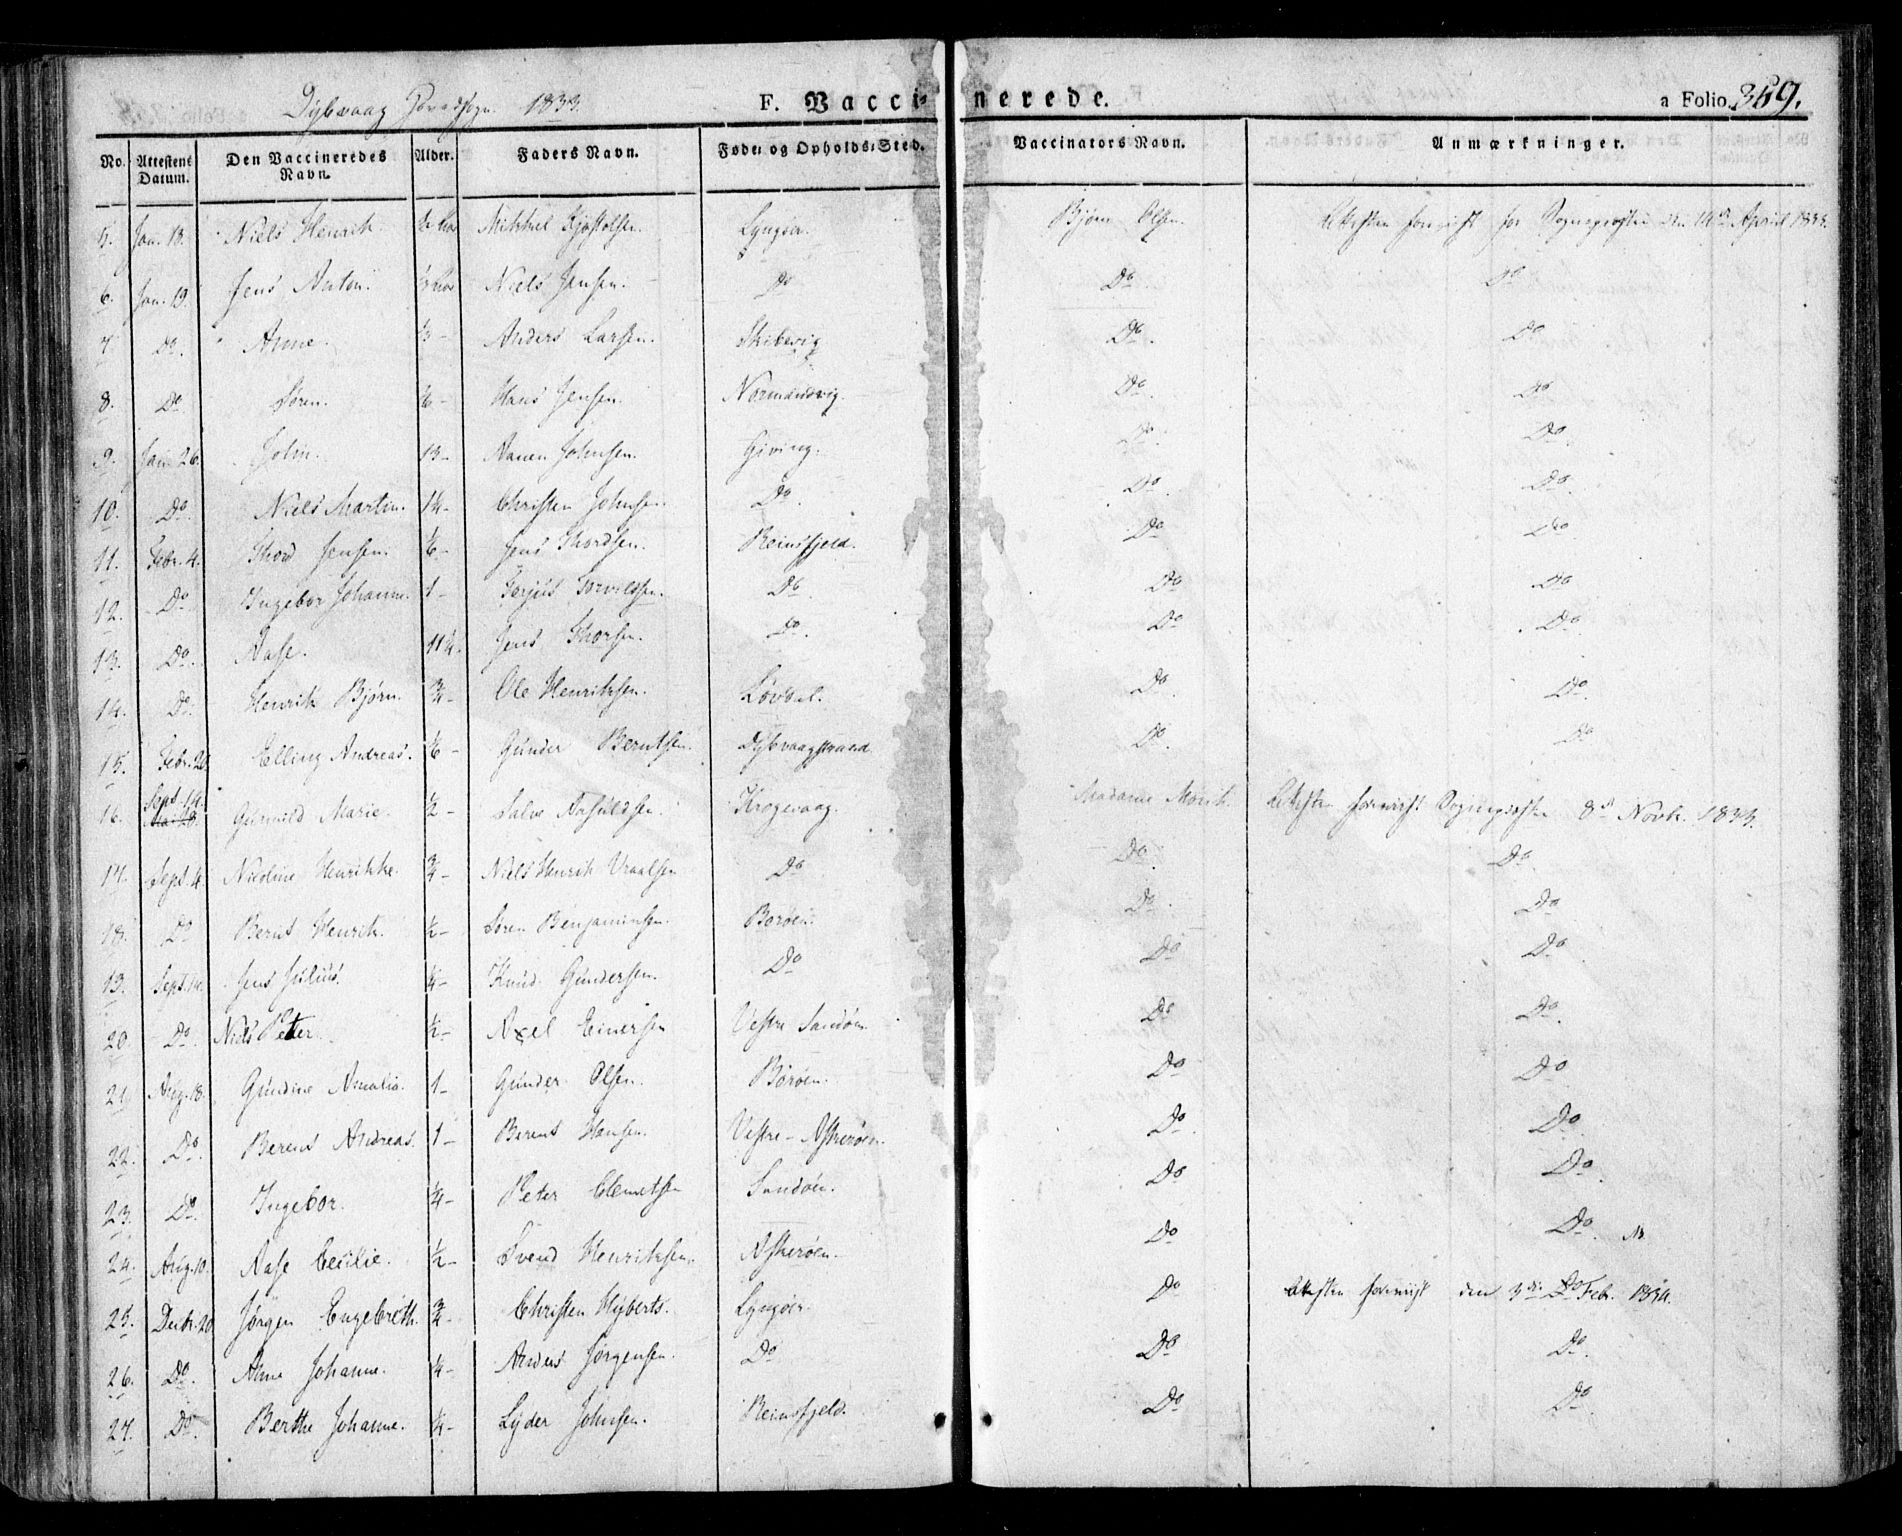 Dybvaag 1833. F. Vaccinerede. a Folio 369.
No. Attestens Datum. Den Vaccineredes Navn. Alder. Faders Navn. Føde- og Opholds-Sted. Vaccinators Navn. Anmærkninger.
5. Jan. 13. Niels Henrik. Mikkel Lyngøer. Bjørn Olsen. Attesten forevist for Sognepræsten den 19de April 1833.
6. Jan. 19. Jens Anton Niels Jensen. Do Do Do
7. Do. Anne. Anders Larsen. Skibevig Do. Do
8. Do Søren. 1/6 - Hans Jensen. Normandsvig. Do. Do
9. Jan. 26. John. 13 - Aanen Johnsen. Giving. Do. Do
10. Do. Niels Martin. 1 1/4 - Christen Johnsen. Do. Do. Do.
11. Febr. 4. Thord Jensen. 1/6 - Jens Thordsen. Reinsfjeld. Do Do
12. Do. Ingebor Johanne. 1 - Torjus Do. Do Do
13. Do. Aase. 11 1/2. Jens Thorsen. Do. Do Do.
14. Do. Henrik Bjørn. 3/4 - Ole Henriksen. Løvdal. Do Do.
15. Febr. 20 Elling Andreas. 1/6 - Gunder Berntsen. Dybvaagstrand Do. Do
16. Sept. 14. Gunnild Marie. 1/2 - Salve Krogevaag. Madame Monk. Attesten forevist Sognepræsten 8de Novbr. 1833.
17. Sept. 4. Nicoline Henrikke. 3/4 - Niels Henrik Vraalsen Do Do Do
18. Do Bernt Henrik. 1/2 - Søren Benjaminsen. Borøen. Do. Do
19. Sept. 14. Jens Julius. 1/4 - Knud Gundersen. Do Do Do
20. Do. Niels Peter 1/2 - Axel Einersen Vestre Sandøen Do Do
21. Aug. 18. Gundine Amalia. 1 - Gunder Olsen. Borøen. Do Do
22. Do. Berent Andreas. 1 - Berent Hansen. Vestre-Askerøen. Do Do
23. Do. Ingebor. 1/4 - Peter Clemetsen Sandøen. Do Do.
24. Aug. 10. Aase Cecilie. 1/2 - Svend Henriksen. Askerøen. Do Do.
25. Decbr. 20 Jørgen Engebreth. 3/4 - Christen Hyberts. Lyngøer. Do Attesten forevist den 3de Febr. 1834.
26. Do. Anne Johanne. 1/4 - Anders Jørgensen. Do Do Do.
27. Do. Berthe Johanne. 1/4 - Lyder Johnsen. Reinsfjeld. Do Do